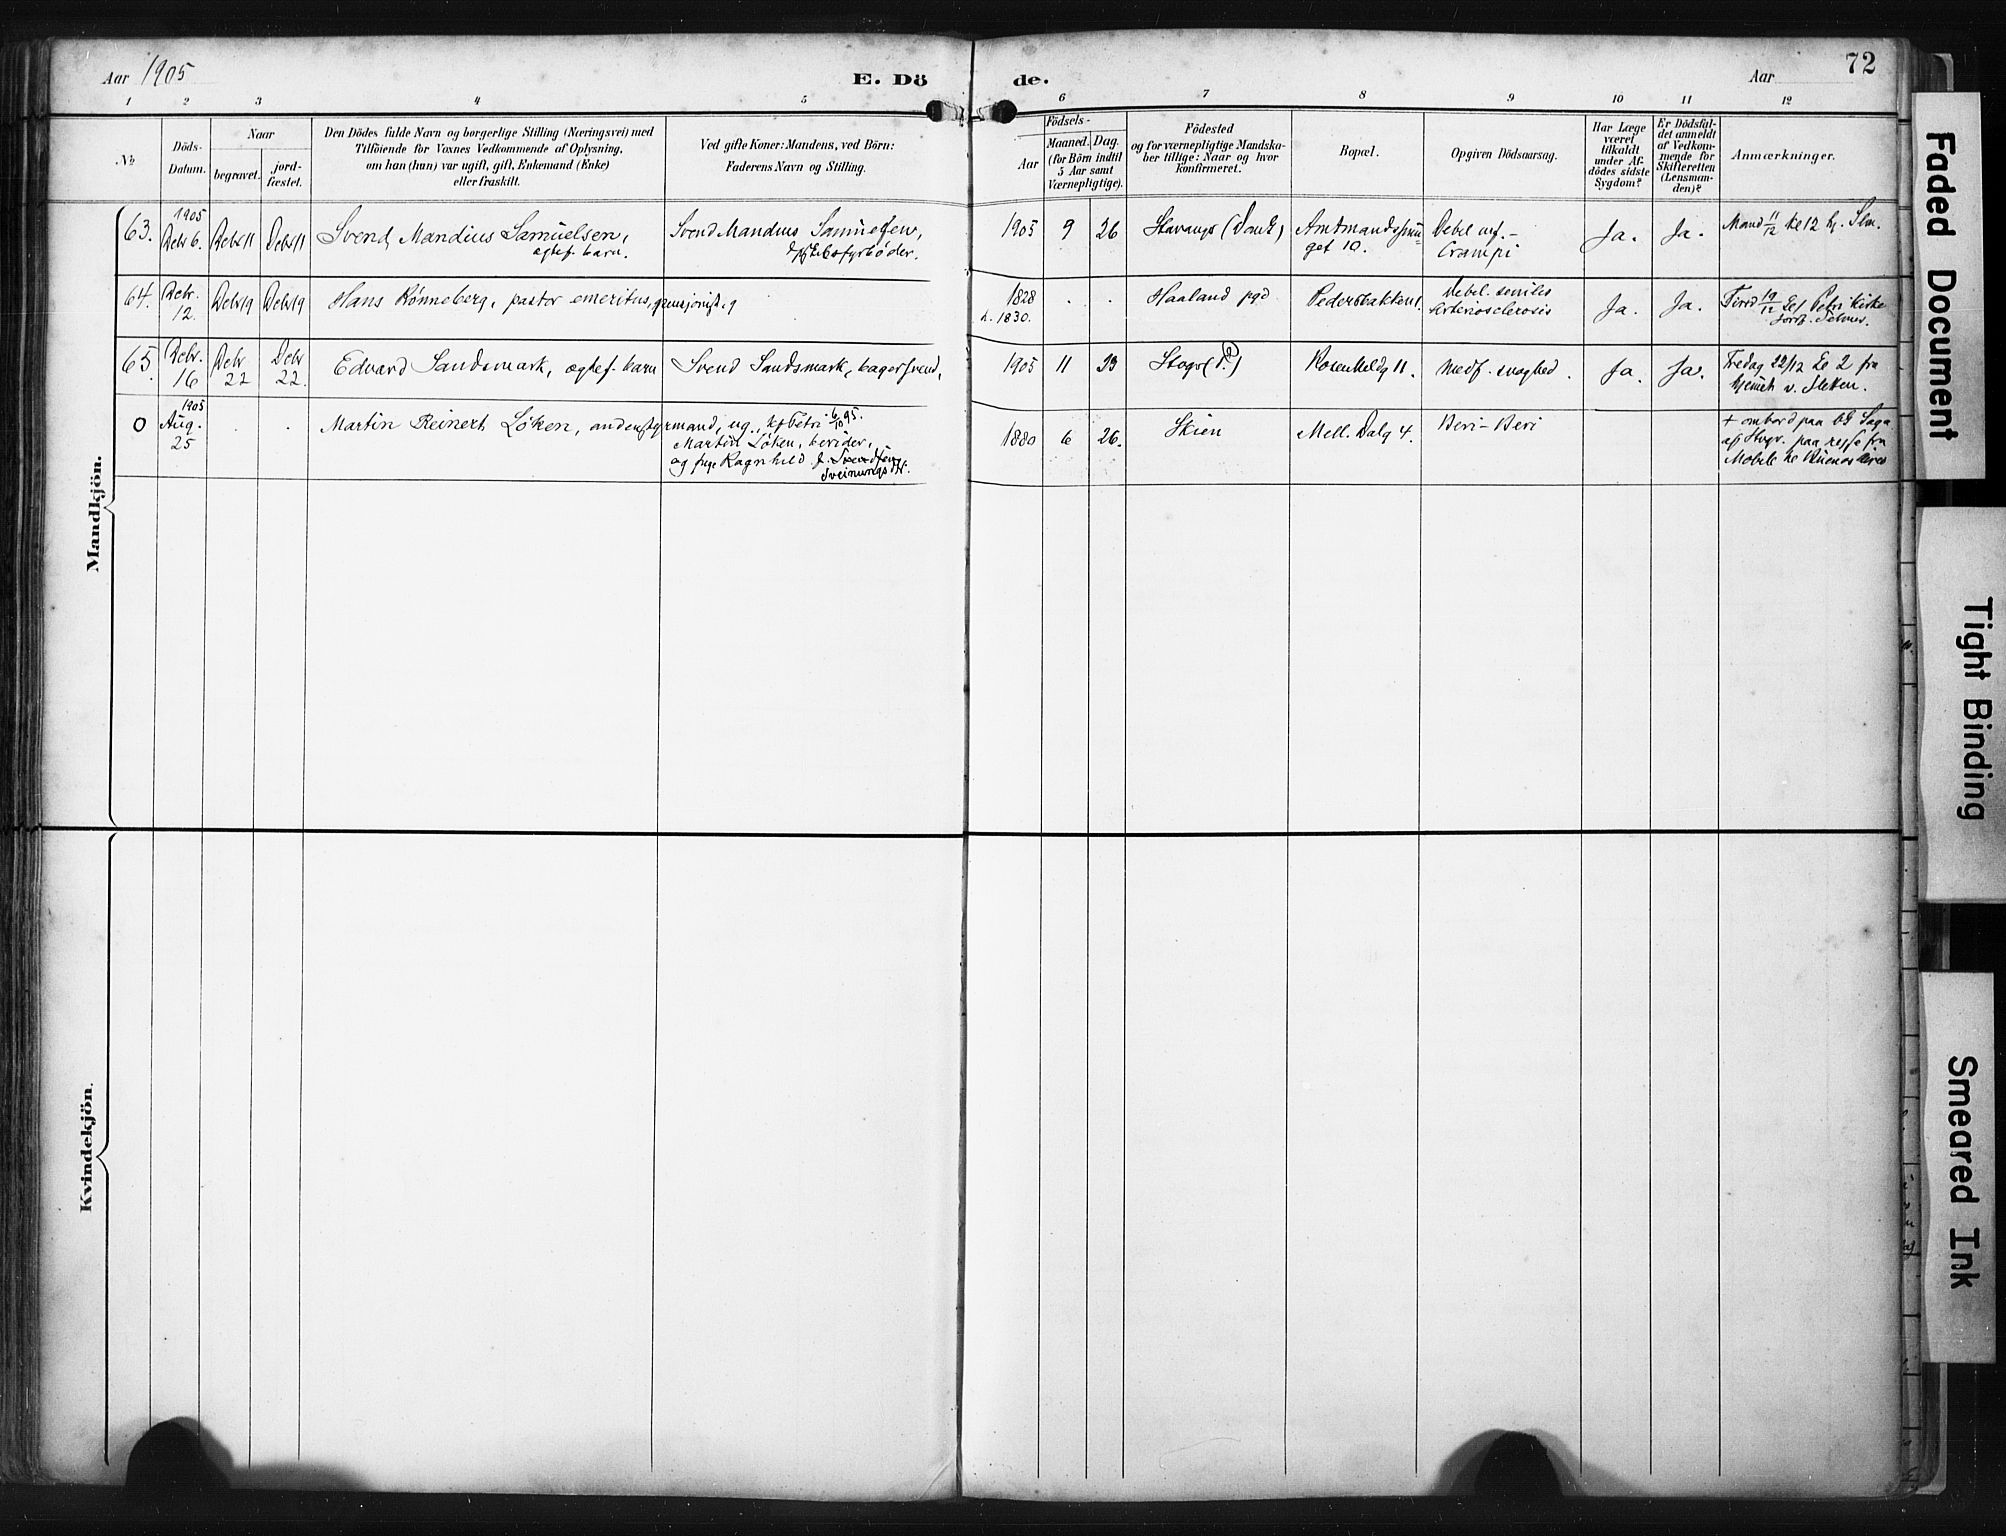 Aar 1905
E. Dö
de.
Aar
72
1 2 3 4 5 6 7 8 9 10 11 12
No
Döds-
Datum.
Naar
begravet.
jord-
fæstet.
Den Dödes fulde Navn og borgerlige Stilling (Næringsvei) med
Tilföiende for Voxnes Vedkommende af Oplysning,
om han (hun) var ugift, gift, Enkemand (Enke)
eller fraskilt.
Ved gifte Koner: Mandens, ved Börn:
Faderens Navn og Stilling.
Födsels-
Aar
Maaned.
Dag.
(for Börn indtil
5 Aar samt
Værnepligtige).
Födested
og for værnepligtige Mandska-
ber tillige: Naar og hvor
konfirmeret.
Bopæl.
Opgiven Dödsaarsag.
Har Læge
været
tilkaldt
under Af-
dödes sidste
Sygdom?
Er Dödsfal-
det anmeldt
af Vedkom-
mende for
Skifteretten
(Lensman-
den)?
Anmærkninger.
Mandkjön.
63.
1905
Decbr 6.
Decbr 11
Decbr 11
Svend Mandius Samuelsen,
ægtef. barn.
Svend Mandius Samuelsen,
fyrbøder.
1905
9
26
Stavanger
Amtmands
get 10.
Debil
Crampi
Ja.
Ja.
Mand 11/12 kl 12
64.
Decbr.
12.
Decbr 19
Decbr 19
Hans Rønneberg, pastor emeritus, pensjonist
1828
1830.
Haaland pgd
Pedersbakken 1.
Debil. senilis
Arteriosclerosis
Ja.
Ja.
Tirsd 19/12 Petri kirke
65
Decbr.
16
Decbr
22
Decbr
22.
Edvard Sandsmark, ægtef. barn
Svend Sandsmark, bagersvend,
1905
11
Stvgr (P.?)
11.
Medf. svaghed.
Ja.
Ja.
Fredag 22/12 kl 2 fra
hjemmet v.
0
1905
Aug.
25
Martin Reinert Løken, andenstyrmand, ug., kf Petri 6/10 95.
Martin Løken, berider,
og frue Ragnhild f. Svendsen
Sveinungsdtr.
1880
6
26.
Skien
Mell. Dalg 4.
Beri-Beri
+ ombord paa Saga
af Stvgr. paa rejse fra
Mobile til Buenos Aires
Kvindekjön.
Faded Document
Tight Binding
Smeared Ink